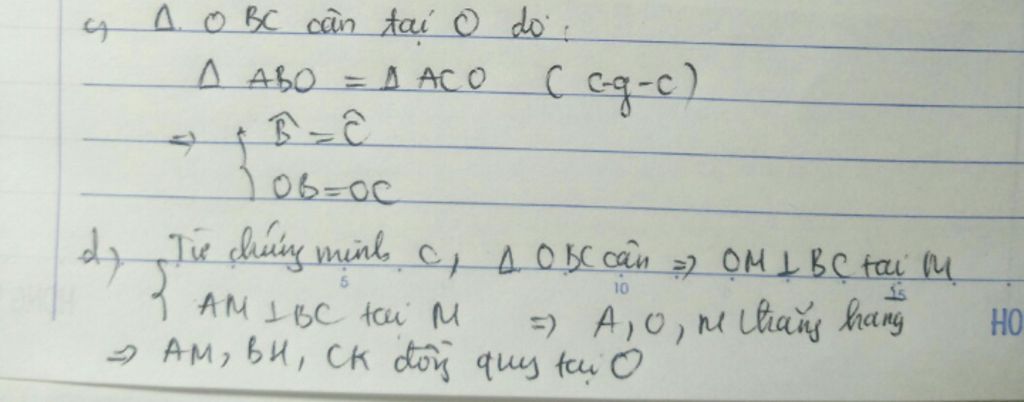 c) Δ OBC cân tại O do:
Δ ABO = Δ ACO (c-g-c)
=> { B̂ = Ĉ
OB = OC
d) Từ chứng minh c, Δ OBC cân => OM ⊥ BC tại M
{ AM ⊥ BC tại M => A, O, M thẳng hang
=> AM, BH, CK đồng quy tại O
5
10
15
HO